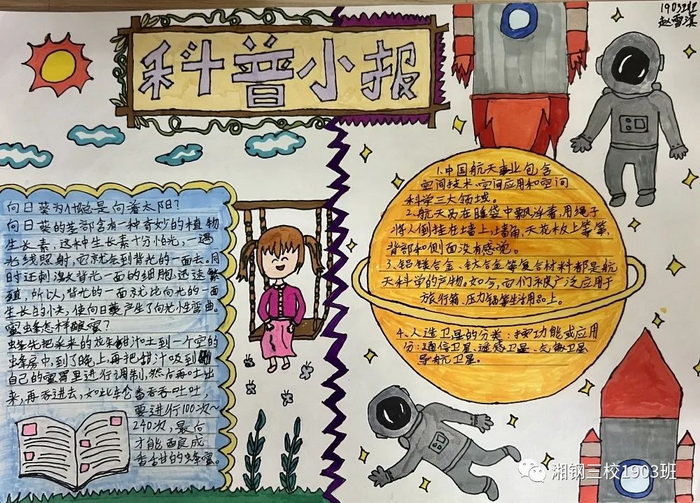 1903班
科普小报
向日葵为什么总是向着太阳?
向日葵的茎部含有一种奇妙的植物
生长素。这种生长素十分怕光,一遇
光线照射,它就跑到背光的一面去。同
时还刺激背光一面的细胞迅速繁
殖,所以,背光的一面就比向光的一面
生长的快,使向日葵产生了向光性弯曲。
蜜蜂怎样酿蜜?
蜂先把采来的花朵甜汁吐到一个空的
蜂房中,到了晚上,再把甜汁吸到
自己的蜜胃里进行调制,然后再吐出
来,再吞进去,如此轮番吞吞吐吐,
要进行100次~
240次,最后
才能酿成
香甜的蜂蜜。
1.中国航天事业包含
空间技术、空间应用和空间
科学三大领域。
2.航天员在睡袋中飘浮着,用绳子
将人倒挂在墙上,墙角,天花板上等等,
背部和侧面没有感觉。
3.铝镁合金、钛合金等复合材料都是航
天科学的产物。如今,它们被广泛应用于
旅行箱、压力锅等生活用品上。
4.人造卫星的分类:按功能或应用
分:通信卫星、遥感卫星、
导航卫星。
湘钢三校1903班